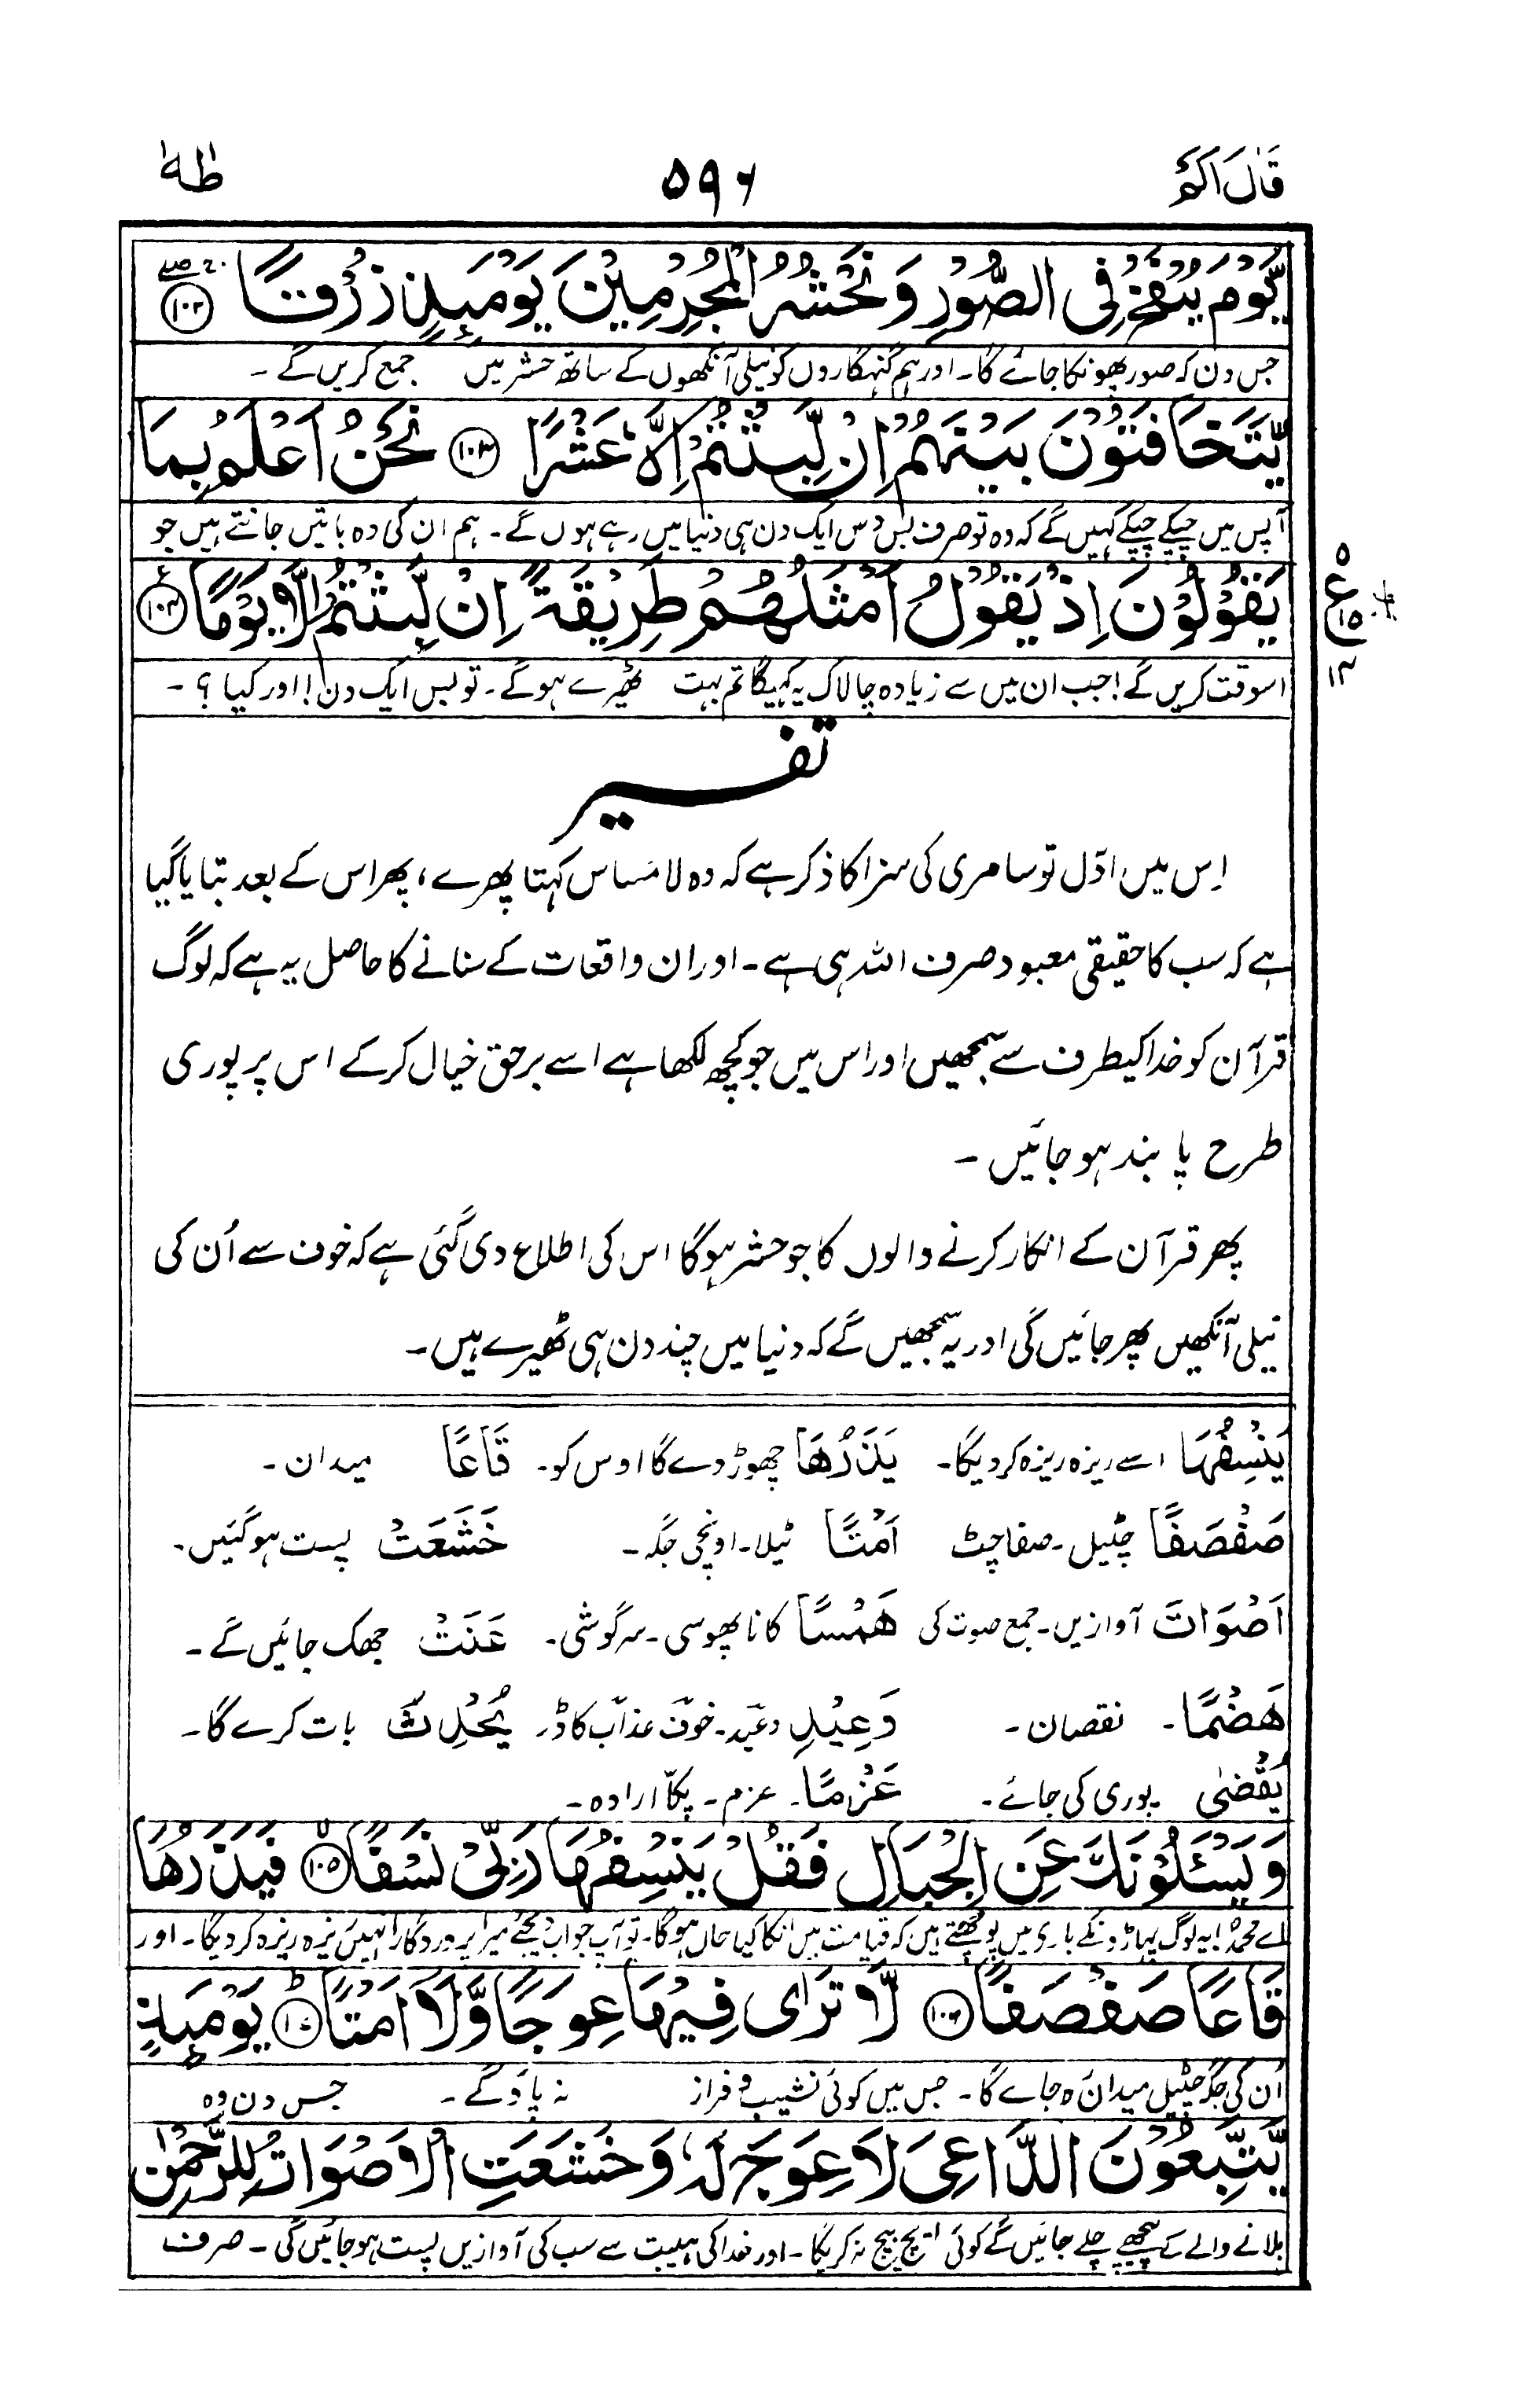 قَالَ اَلَمْ ۵۹۶ طٰهٰ
يَّوْمَ يُنْفَخُ فِى الصُّوْرِ وَنَحْشُرُ الْمُجْرِمِيْنَ يَوْمَئِذٍ زُرْقًا ۱۰۲
جس دن کہ صور پھونکا جائے گا۔ اور ہم گنہگاروں کو نیلی آنکھوں کے ساتھ حشر میں جمع کریں گے ۔
يَّتَخَافَتُوْنَ بَيْنَهُمْ اِنْ لَّبِثْتُمْ اِلَّا عَشْرًا ۱۰۳ نَحْنُ اَعْلَمُ بِمَا
آپس میں چپکے چپکے کہیں گے کہ وہ تو صرف بس دس ایک دن ہی دنیا میں رہے ہوں گے ۔ ہم ان کی وہ باتیں جانتے ہیں جو
يَقُوْلُوْنَ اِذْ يَقُوْلُ اَمْثَلُهُمْ طَرِيْقَةً اِنْ لَّبِثْتُمْ اِلَّا يَوْمًا ۱۰۴
۵ ع ۱۵ ۱۳
اسوقت کریں گے! جب ان میں سے زیادہ چالاک یہ کہیگا تم بہت ٹھیرے ہوگے ۔ تو بس ایک دن! اور کیا ؟ ۔
تفسیر
اِس میں اوّل تو سامری کی سزا کا ذکر ہے کہ وہ لامساس کہتا پھرے ، پھر اس کے بعد بتایا گیا
ہے کہ سب کا حقیقی معبود صرف اللہ ہی ہے ۔ اور ان واقعات کے سنانے کا حاصل یہ ہے کہ لوگ
قرآن کو خدا کیطرف سے سمجھیں اور اس میں جو کچھ لکھا ہے اسے برحق خیال کرکے اس پر پوری
طرح پابند ہو جائیں ۔
پھر قرآن کے انکار کرنے والوں کا جو حشر ہوگا اس کی اطلاع دی گئی ہے کہ خوف سے اُن کی
نیلی آنکھیں پھر جائیں گی اور یہ سمجھیں گے کہ دنیا میں چند دن ہی ٹھیرے ہیں ۔
يَنْسِفُهَا اسے ریزہ ریزہ کر دیگا۔ يَذَرُهَا چھوڑ دے گا اوس کو۔ قَاعًا میدان ۔
صَفْصَفًا چٹیل ۔ صفاچٹ اَمْتًا ٹیلا۔ اونچی جگہ ۔ خَشَعَتْ پست ہو گئیں ۔
اَصْوَاتَ آوازیں ۔ جمع صوت کی هَمْسًا کاناپھوسی ۔ سرگوشی ۔ عَنَتْ جھک جائیں گے ۔
هَضْمًا ۔ نقصان ۔ وَعِيْدِ وعید ۔ خوف عذاب کا ڈر يُحْدِثُ بات کرے گا ۔
يُقْضٰى پوری کی جائے ۔ عَزْمًا ۔ عزم ۔ پکّا ارادہ ۔
وَيَسْئَلُوْنَكَ عَنِ الْجِبَالِ فَقُلْ يَنْسِفُهَا رَبِّىْ نَسْفًا ۱۰۵ فَيَذَرُهَا
اے محمدؐ! یہ لوگ پہاڑونکے باری میں پوچھتے ہیں کہ قیامت میں انکا کیا حال ہوگا۔ تو آپ جواب دیجئے میرا پروردگار انہیں ریزہ ریزہ کر دیگا ۔ اور
قَاعًا صَفْصَفًا ۱۰۶ لَّا تَرٰى فِيْهَا عِوَجًا وَّلَا اَمْتًا ۱۰۷ يَوْمَئِذٍ
اُن کی جگہ چٹیل میدان رہ جاے گا ۔ جس میں کوئی نشیب و فراز نہ پاؤگے ۔ جس دن وہ
يَّتَّبِعُوْنَ الدَّاعِىَ لَا عِوَجَ لَهٗ وَخَشَعَتِ الْاَصْوَاتُ لِلرَّحْمٰنِ
بلانے والے کے پیچھے چلے جائیں گے کوئی اینچ پینچ نہ کریگا ۔ اور خدا کی ہیبت سے سب کی آوازیں پست ہو جائیں گی ۔ صرف